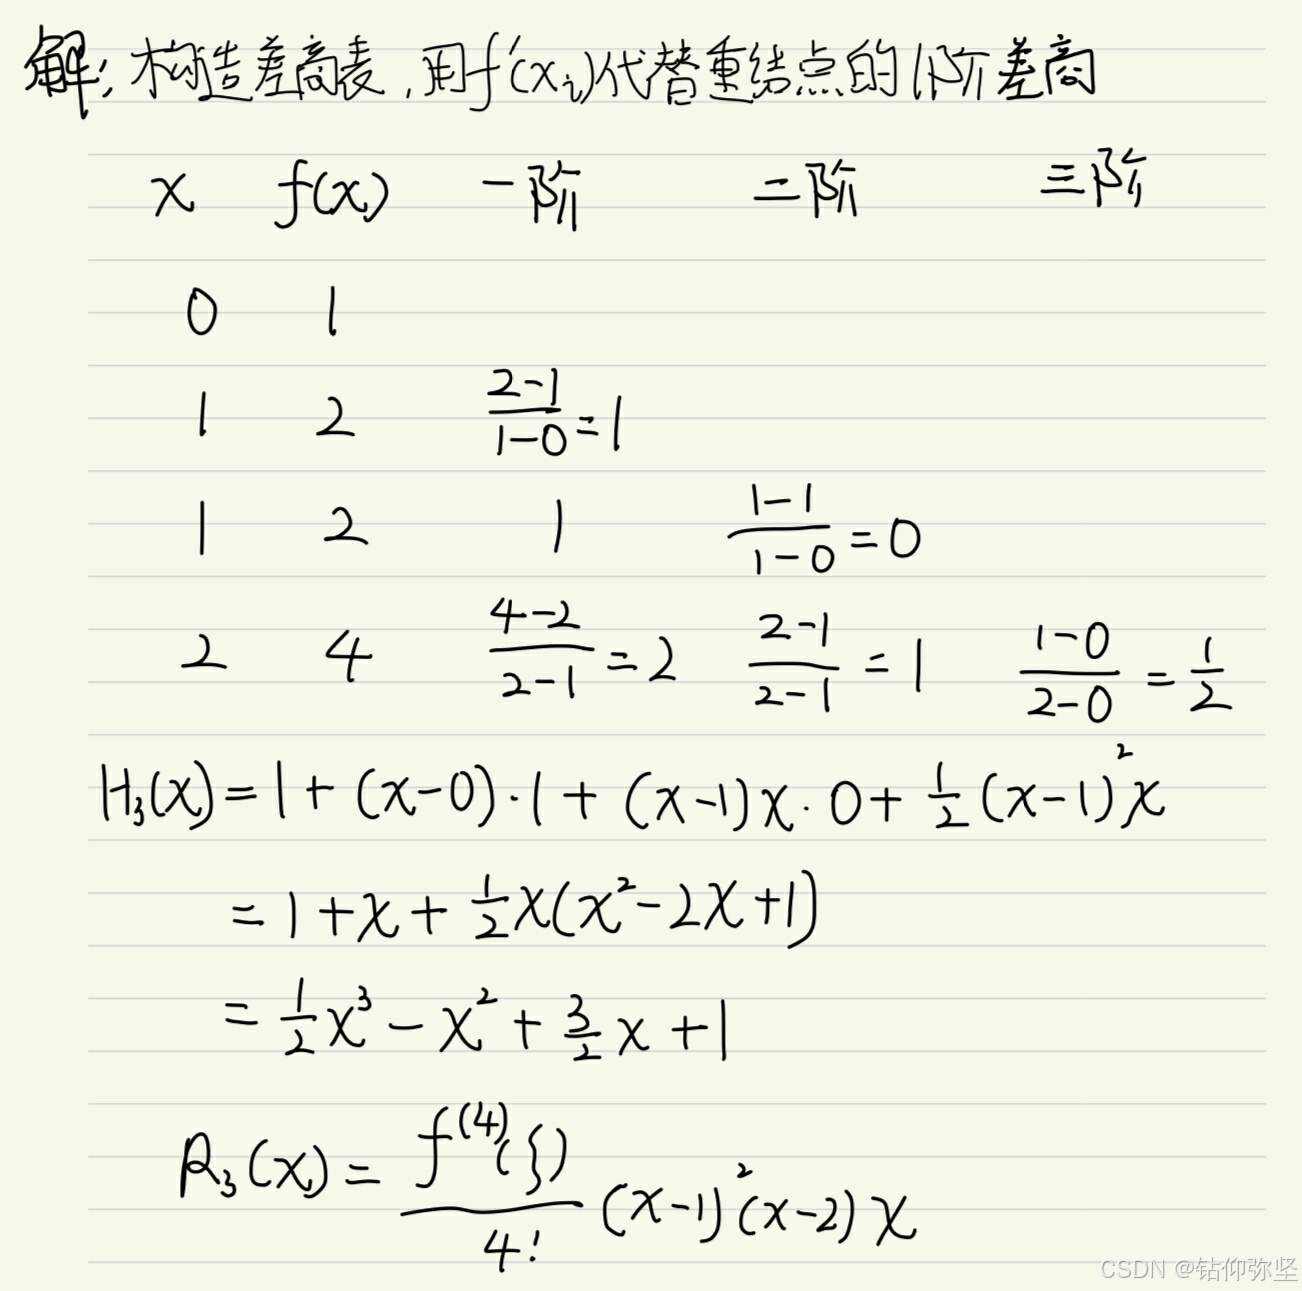 解:构造差商表,用f'(xᵢ)代替重结点的1阶差商
x f(x) 一阶 二阶 三阶
0 1
1 2 (2-1)/(1-0)=1
1 2 1 (1-1)/(1-0)=0
2 4 (4-2)/(2-1)=2 (2-1)/(2-1)=1 (1-0)/(2-0)=1/2
H₃(x)=1+(x-0)·1+(x-1)x·0+1/2(x-1)²x
=1+x+1/2x(x²-2x+1)
=1/2x³-x²+3/2x+1
R₃(x)=f⁽⁴⁾(ξ)/4!(x-1)²(x-2)x
CSDN @钻仰弥坚